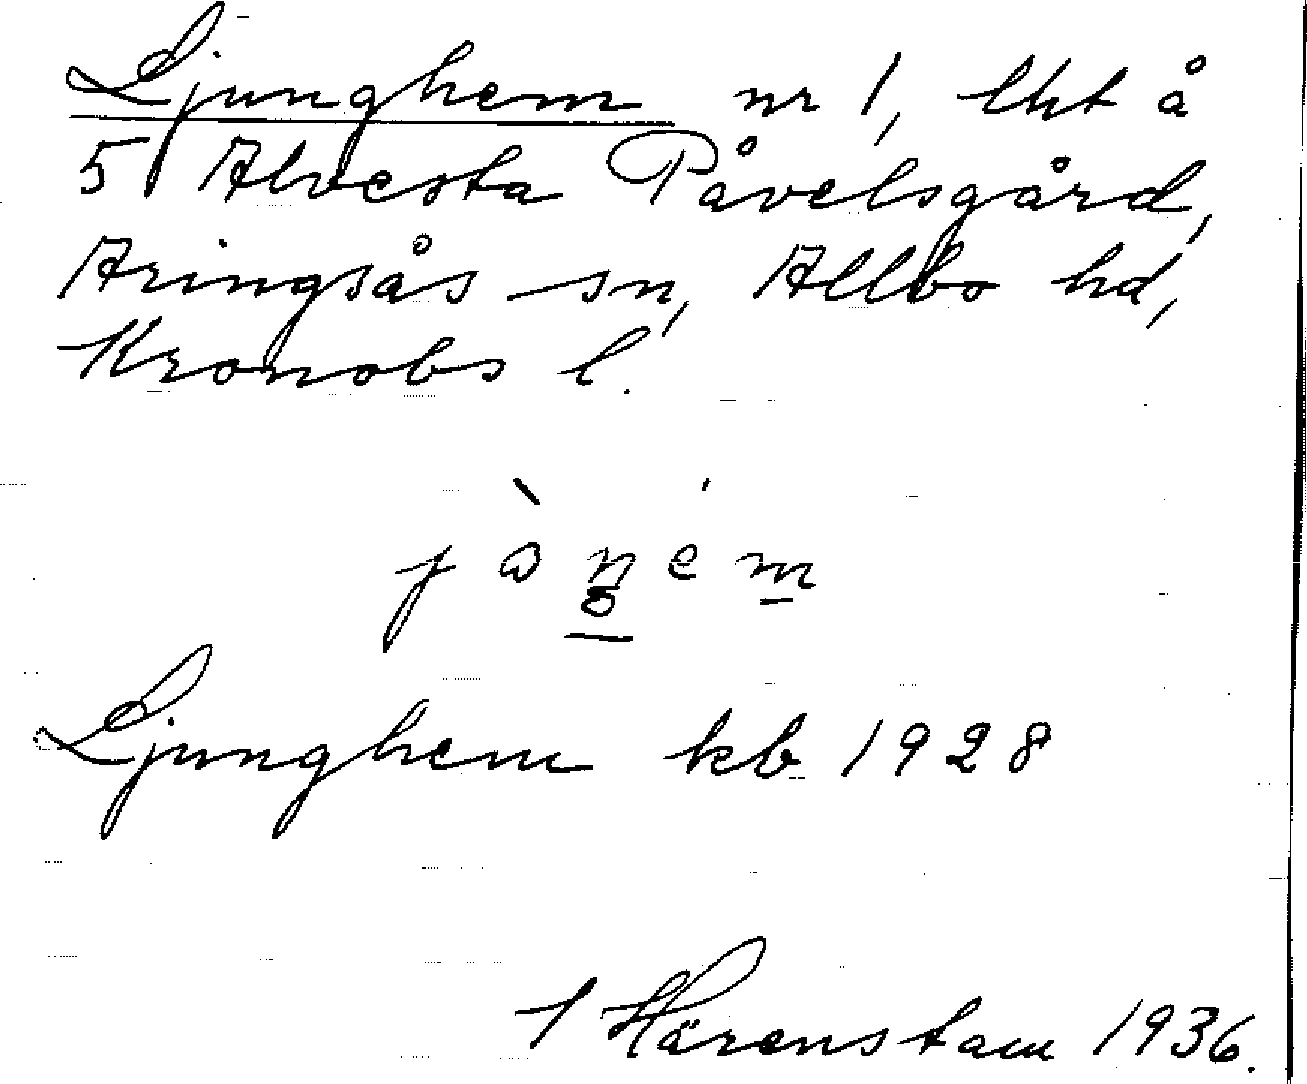 Ljunghem nr 1, lht å
5 Alvesta Påvelsgård,
Aringsås sn, Allbo hd,
Kronobs l.
Ljunghem kb 1928
1 Härenstam 1936.